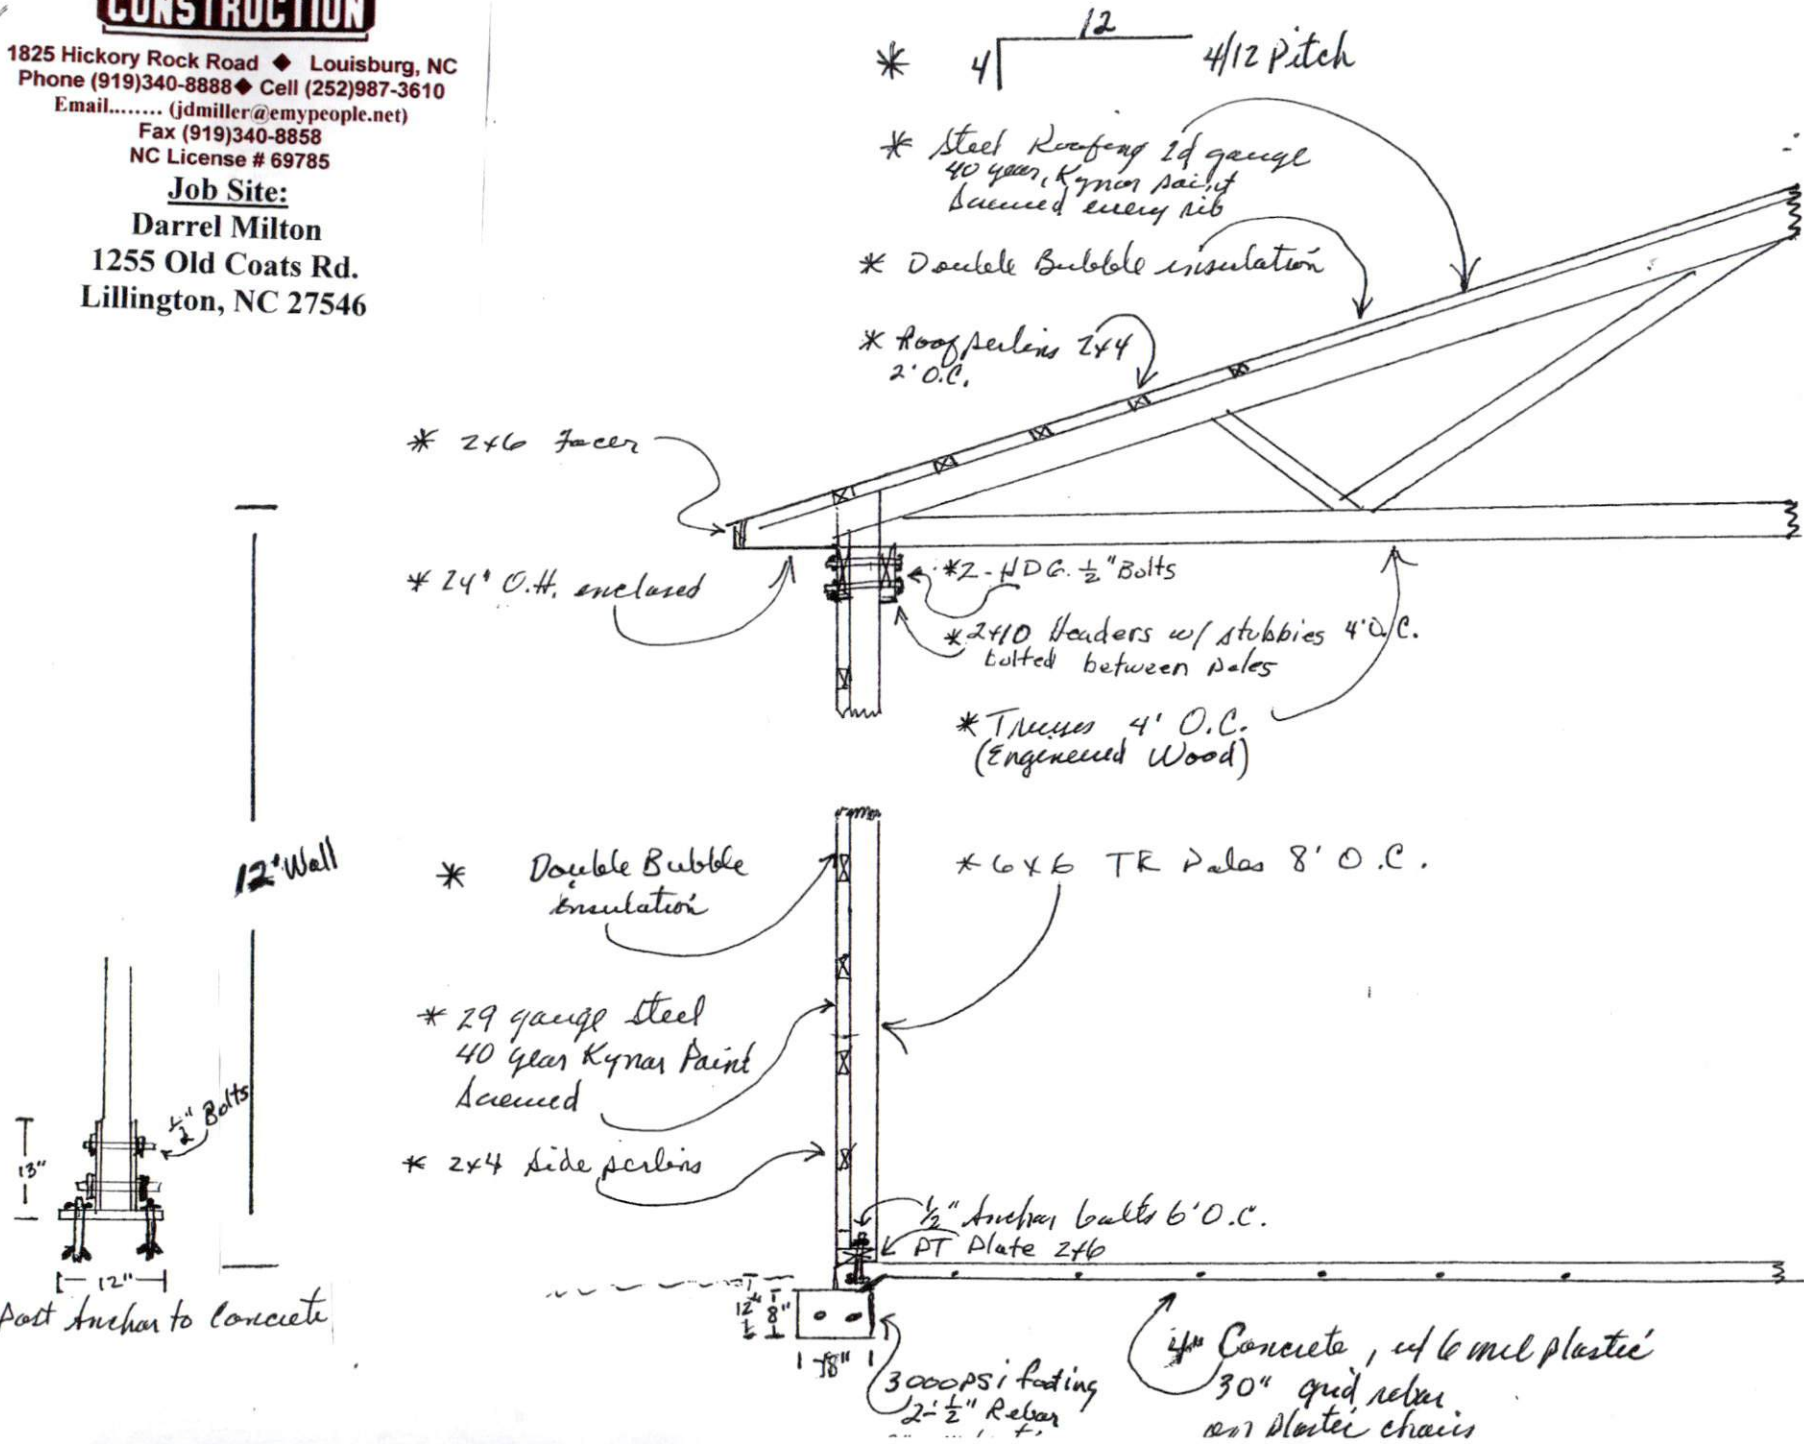 CONSTRUCTION
1825 Hickory Rock Road ◆ Louisburg, NC
Phone (919)340-8888◆ Cell (252)987-3610
Email........ (jdmiller@emypeople.net)
Fax (919)340-8858
NC License # 69785
Job Site:
Darrel Milton
1255 Old Coats Rd.
Lillington, NC 27546
12
* 4 4/12 Pitch
* Steel Roofing 29 gauge
40 year, Kynar paint
Screwed every rib
* Double Bubble insulation
* Roof perlins 2x4
2' O.C.
* 2x6 Facer
* 24" O.H. enclosed
*2-HDG. 1/2" Bolts
*2x10 Headers w/ stubbies 4'O.C.
bolted between poles
* Trusses 4' O.C.
(Engeneered Wood)
12' Wall
* Double Bubble
insulation
* 6x6 TR Poles 8' O.C.
* 29 gauge steel
40 year Kynar Paint
Screwed
* 2x4 side perlins
1/2" Bolts
13"
12"
Post Anchor to Concrete
1/2" Anchor bolts 6'O.C.
PT Plate 2x6
12" 8"
18"
3000 PSi footing
2-1/2" Rebar
4" Concrete, w/ 6 mil plastic
30" grid rebar
on plastic chairs